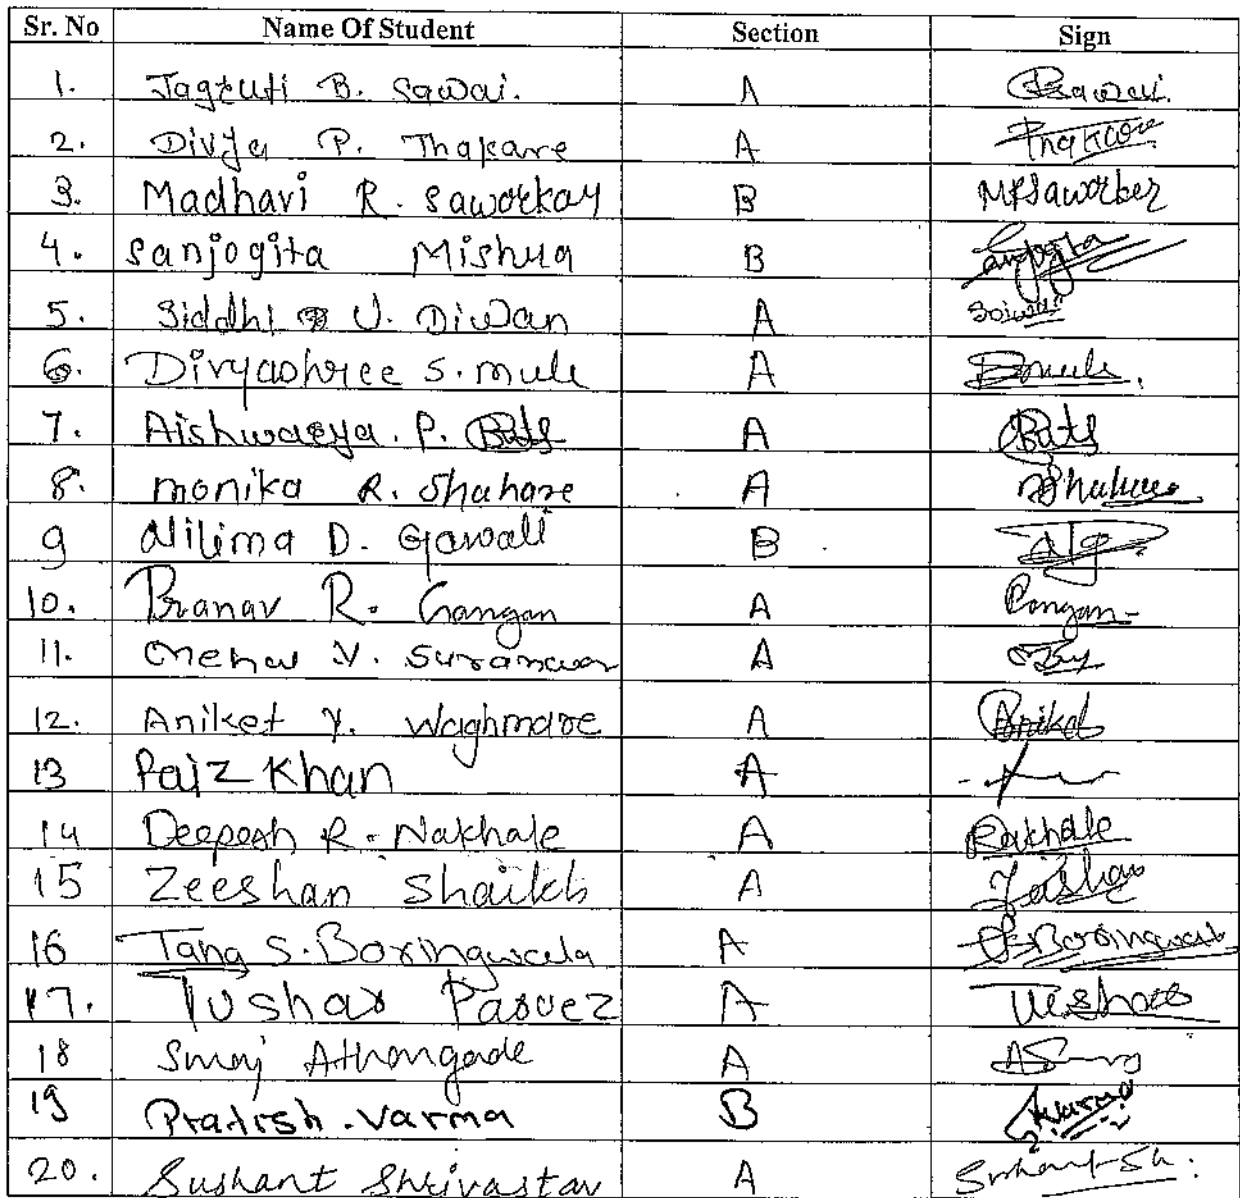 Sr. No Name Of Student Section Sign
1. Jagruti B. Sawai. A Bsawai.
2. Divya P. Thakare A Thakare
3. Madhavi R. Saworkar B MRSaworker
4. Sanjogita Mishra B Sanjogita
5. Siddhi U. Diwan A
6. Divyashree S. mule A Dmule.
7. Aishwarya. P. A
8. monika R. Shahare A
9 Nilima D. Gawali B
10. Pranav R. Gangan A
11. V. Suranwar A
12. Aniket Y. Waghmare A Aniket
13 Faiz Khan A
14 Deepesh R. Nakhale A Rakhale
15 Zeeshan Shaikh A Zeeshan
16 S. Boringwala A Boringwala
17. Tushar Parvez A Tushar
18 Suraj Athangade A
19 Pratish. Varma B Varma
20. Sushant Shrivastav A Sushant Sh.